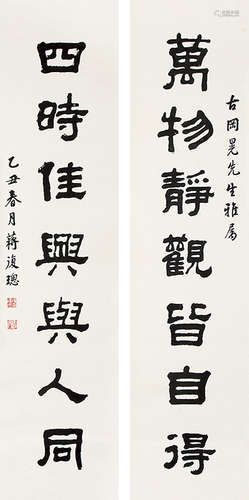 萬物靜觀皆自得
古岡晃先生雅屬
四時佳興與人同
乙丑春月蔣復璁